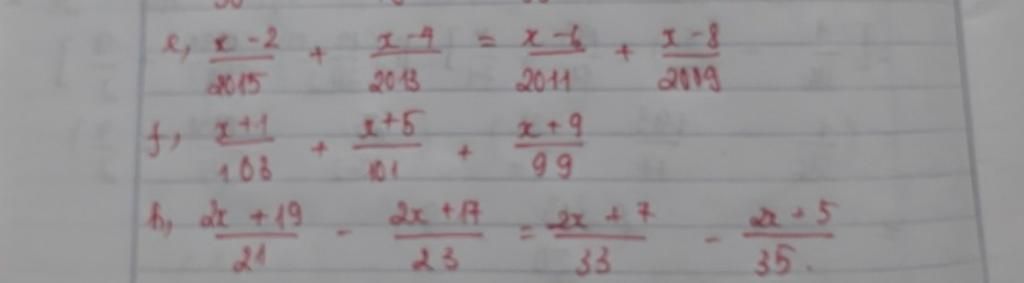 e, x-2/2015 + x-4/2013 = x-6/2011 + x-8/2009
f, x+1/103 + x+5/101 + x+9/99
h, 2x+19/21 - 2x+17/23 = 2x+7/33 - 2x+5/35.